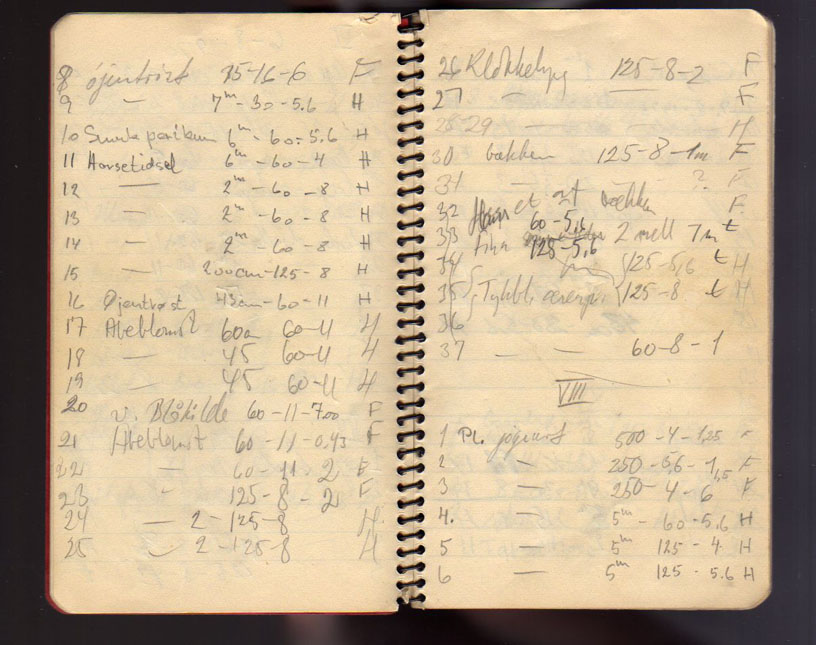 8 öjentröst 75-16-6 F
9 — 7m - 30 - 5.6 H
10 6m - 60 - 5.6 H
11 Horsetidsel 6m - 60 - 4 H
12 — 2m - 60 - 8 H
13 — 2m - 60 - 8 H
14 — 2m - 60 - 8 H
15 — 200cm - 125 - 8 H
16 Øjentrøst 45cm - 60 - 11 H
17 Abeblomst 60 60-11 H
18 — 45 60-11 H
19 — 45 60-11 H
20 v. Blåkilde 60-11-7.00 F
21 Abeblomst 60-11-0,45 F
22 — 60-11-2 F
23 " 125-8-2 F
24 — 2-125-8 H
25 — 2-125-8 H
26 125-8-2 F
27 " — F
28 29 — — H
30 bækken 125-8-1m F
31 — ? F
32 et af F
33 60-5,6 2 mell 7m t
125-5,6
34 125-5,6 t H
35 125-8 t H
36
37 — — 60-8-1
VIII
1 Pl. 500-4-1,25 F
2 — 250-5,6-1,5 F
3 — 250-4-6 F
4. — 5m - 60-5.6 H
5 — 5m 125-4 H
6 — 5m 125-5.6 H